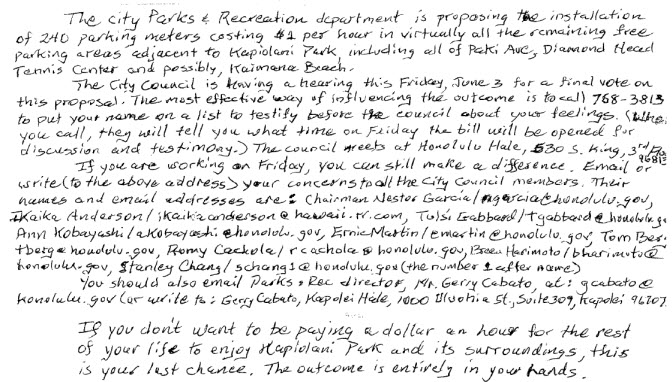 The city Parks & Recreation department is proposing the installation
of 240 parking meters costing $1 per hour in virtually all the remaining free
parking areas adjacent to Kapiolani Park, including all of Paki Ave, Diamond Head
Tennis Center and possibly, Kaimana Beach.
The City Council is having a hearing this Friday, June 3 for a final vote on
this proposal. The most effective way of influencing the outcome is to call 768-3813
to put your name on a list to testify before the council about your feelings. (When
you call, they will tell you what time on Friday the bill will be opened for
discussion and testimony.) The council meets at Honolulu Hale, 530 S. King, 3rd
96813
If you are working on Friday, you can still make a difference. Email or
write (to the above address) your concerns to all the City Council members. Their
names and email addresses are: Chairman Nestor Garcia/ngarcia@honolulu.gov,
Ikaika Anderson/ikaikaanderson@hawaii.rr.com, Tulsi Gabbard/tgabbard@honolulu.go
Ann Kobayashi/akobayashi@honolulu.gov, Ernie Martin/emartin@honolulu.gov, Tom Ber
tberg@honolulu.gov, Romy Cachola/rcachola@honolulu.gov, Breen Harimoto/bharimoto@
honolulu.gov, Stanley Chang/schang1@honolulu.gov (the number 1 after name)
You should also email Parks & Rec director, Mr. Gerry Cabato, at: gcabato@
honolulu.gov (or write to: Gerry Cabato, Kapolei Hale, 1000 Uluohia St., Suite 309, Kapolei 96707
If you don't want to be paying a dollar an hour for the rest
of your life to enjoy Kapiolani Park and its surroundings, this
is your last chance. The outcome is entirely in your hands.